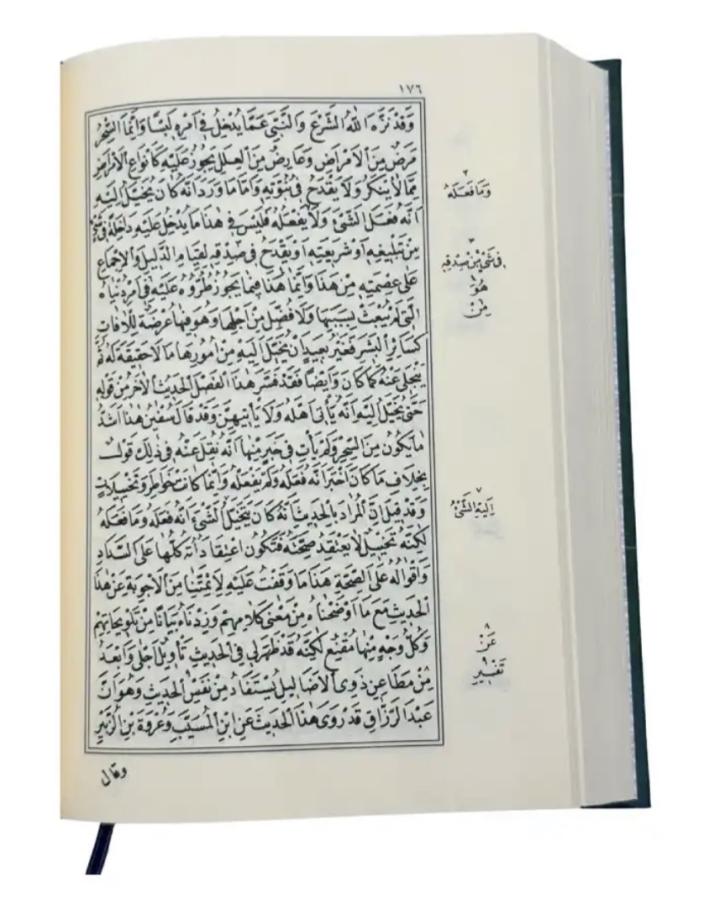 ١٧٦
وَقَدْ نَزَّهَ اللّٰهُ الشَّرْعَ وَالنَّبِيَّ عَمَّا يُدْخِلُ فِي اَمْرِهِ لَبْسًا وَاِنَّمَا السِّحْرُ
مَرَضٌ مِنَ الْاَمْرَاضِ وَعَارِضٌ مِنَ الْعِلَلِ يَجُوزُ عَلَيْهِ كَاَنْوَاعِ الْاَمْرَاضِ
مِمَّا لَا يُنْكَرُ وَلَا يَقْدَحُ فِي نُبُوَّتِهِ وَاَمَّا مَا وَرَدَ اَنَّهُ كَانَ يُخَيَّلُ اِلَيْهِ
اَنَّهُ فَعَلَ الشَّيْءَ وَلَا يَفْعَلُهُ فَلَيْسَ فِي هٰذَا مَا يُدْخِلُ عَلَيْهِ دَاخِلَةً فِي شَيْءٍ
مِنْ تَبْلِيغِهِ اَوْ شَرِيعَتِهِ اَوْ يَقْدَحُ فِي صِدْقِهِ لِقِيَامِ الدَّلِيلِ وَالْاِجْمَاعِ
عَلَى عِصْمَتِهِ مِنْ هٰذَا وَاِنَّمَا هٰذَا فِيمَا يَجُوزُ طُرُوُّهُ عَلَيْهِ فِي اَمْرِ دُنْيَاهُ
الَّتِي لَمْ يُبْعَثْ بِسَبَبِهَا وَلَا فُضِّلَ مِنْ اَجْلِهَا وَهُوَ فِيهَا عُرْضَةٌ لِلْاٰفَاتِ
كَسَائِرِ الْبَشَرِ فَغَيْرُ بَعِيدٍ اَنْ يُخَيَّلَ اِلَيْهِ مِنْ اُمُورِهَا مَا لَا حَقِيقَةَ لَهُ ثُمَّ
يَنْجَلِي عَنْهُ كَمَا كَانَ وَاَيْضًا فَقَدْ فَسَّرَ هٰذَا الْفَصْلَ الْحَدِيثُ الْاٰخَرُ مِنْ قَوْلِهِ
حَتَّى يُخَيَّلَ اِلَيْهِ اَنَّهُ يَأْتِي اَهْلَهُ وَلَا يَأْتِيهِنَّ وَقَدْ قَالَ سُفْيٰنُ هٰذَا اَشَدُّ
مَا يَكُونُ مِنَ السِّحْرِ وَلَمْ يَأْتِ فِي خَبَرٍ مِنْهَا اَنَّهُ نُقِلَ عَنْهُ فِي ذٰلِكَ قَوْلٌ
بِخِلَافِ مَا كَانَ اَخْبَرَ اَنَّهُ فَعَلَهُ وَلَمْ يَفْعَلْهُ وَاِنَّمَا كَانَتْ خَوَاطِرَ وَتَخْيِيلَاتٍ
وَقَدْ قِيلَ اِنَّ الْمُرَادَ بِالْحَدِيثِ اَنَّهُ كَانَ يَتَخَيَّلُ الشَّيْءَ اَنَّهُ فَعَلَهُ وَمَا فَعَلَهُ
لٰكِنَّهُ تَخْيِيلٌ لَا يَعْتَقِدُ صِحَّتَهُ فَتَكُونُ اعْتِقَادَاتُهُ كُلُّهَا عَلَى السَّدَادِ
وَاَقْوَالُهُ عَلَى الصِّحَّةِ هٰذَا مَا وَقَفْتُ عَلَيْهِ لِاَئِمَّتِنَا مِنَ الْاَجْوِبَةِ عَنْ هٰذَا
الْحَدِيثِ مَعَ مَا اَوْضَحْنَاهُ مِنْ مَعْنَى كَلَامِهِمْ وَزِدْنَاهُ بَيَانًا مِنْ تَلْوِيحَاتِهِمْ
وَكُلُّ وَجْهٍ مِنْهَا مُقْنِعٌ لٰكِنَّهُ قَدْ ظَهَرَ لِي فِي الْحَدِيثِ تَأْوِيلٌ اَجْلَى وَاَبْعَدُ
مِنْ مَطَاعِنِ ذَوِي الْاَضَالِيلِ يُسْتَفَادُ مِنْ نَفْسِ الْحَدِيثِ وَهُوَ اَنَّ
عَبْدَ الرَّزَّاقِ قَدْ رَوَى هٰذَا الْحَدِيثَ عَنِ ابْنِ الْمُسَيَّبِ وَعُرْوَةَ بْنِ الزُّبَيْرِ
وقال
٢
وَمَا فَعَلَهُ
٣
فِي شَيْءٍ مِنْ صِدْقِهِ
هُوَ
مِنْ
٧
اِلَيْهِ الشَّيْءُ
٨
عَنْ
٩
تَفْسِيرِ